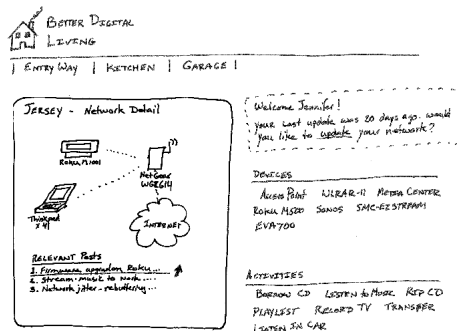 BETTER DIGITAL
LIVING
| ENTRY WAY | KITCHEN | GARAGE |
JERSEY - Network Detail
Roku M1001
NetGear
WGR614
Thinkpad
X41
INTERNET
RELEVANT POSTS
1. Firmware upgrade on Roku...
2. Stream-music to work...
3. Network jitter-rebuffering...
Welcome Jennifer!
your last update was 20 days ago. would
you like to update your network?
DEVICES
Access Point WLRAR-11 MEDIA CENTER
Roku M500 SONOS SMC-EZSTREAM
EVA700
ACTIVITIES
BORROW CD LISTEN to MUSIC RIP CD
PLAYLIST RECORD TV TRANSFER
LISTEN IN CAR